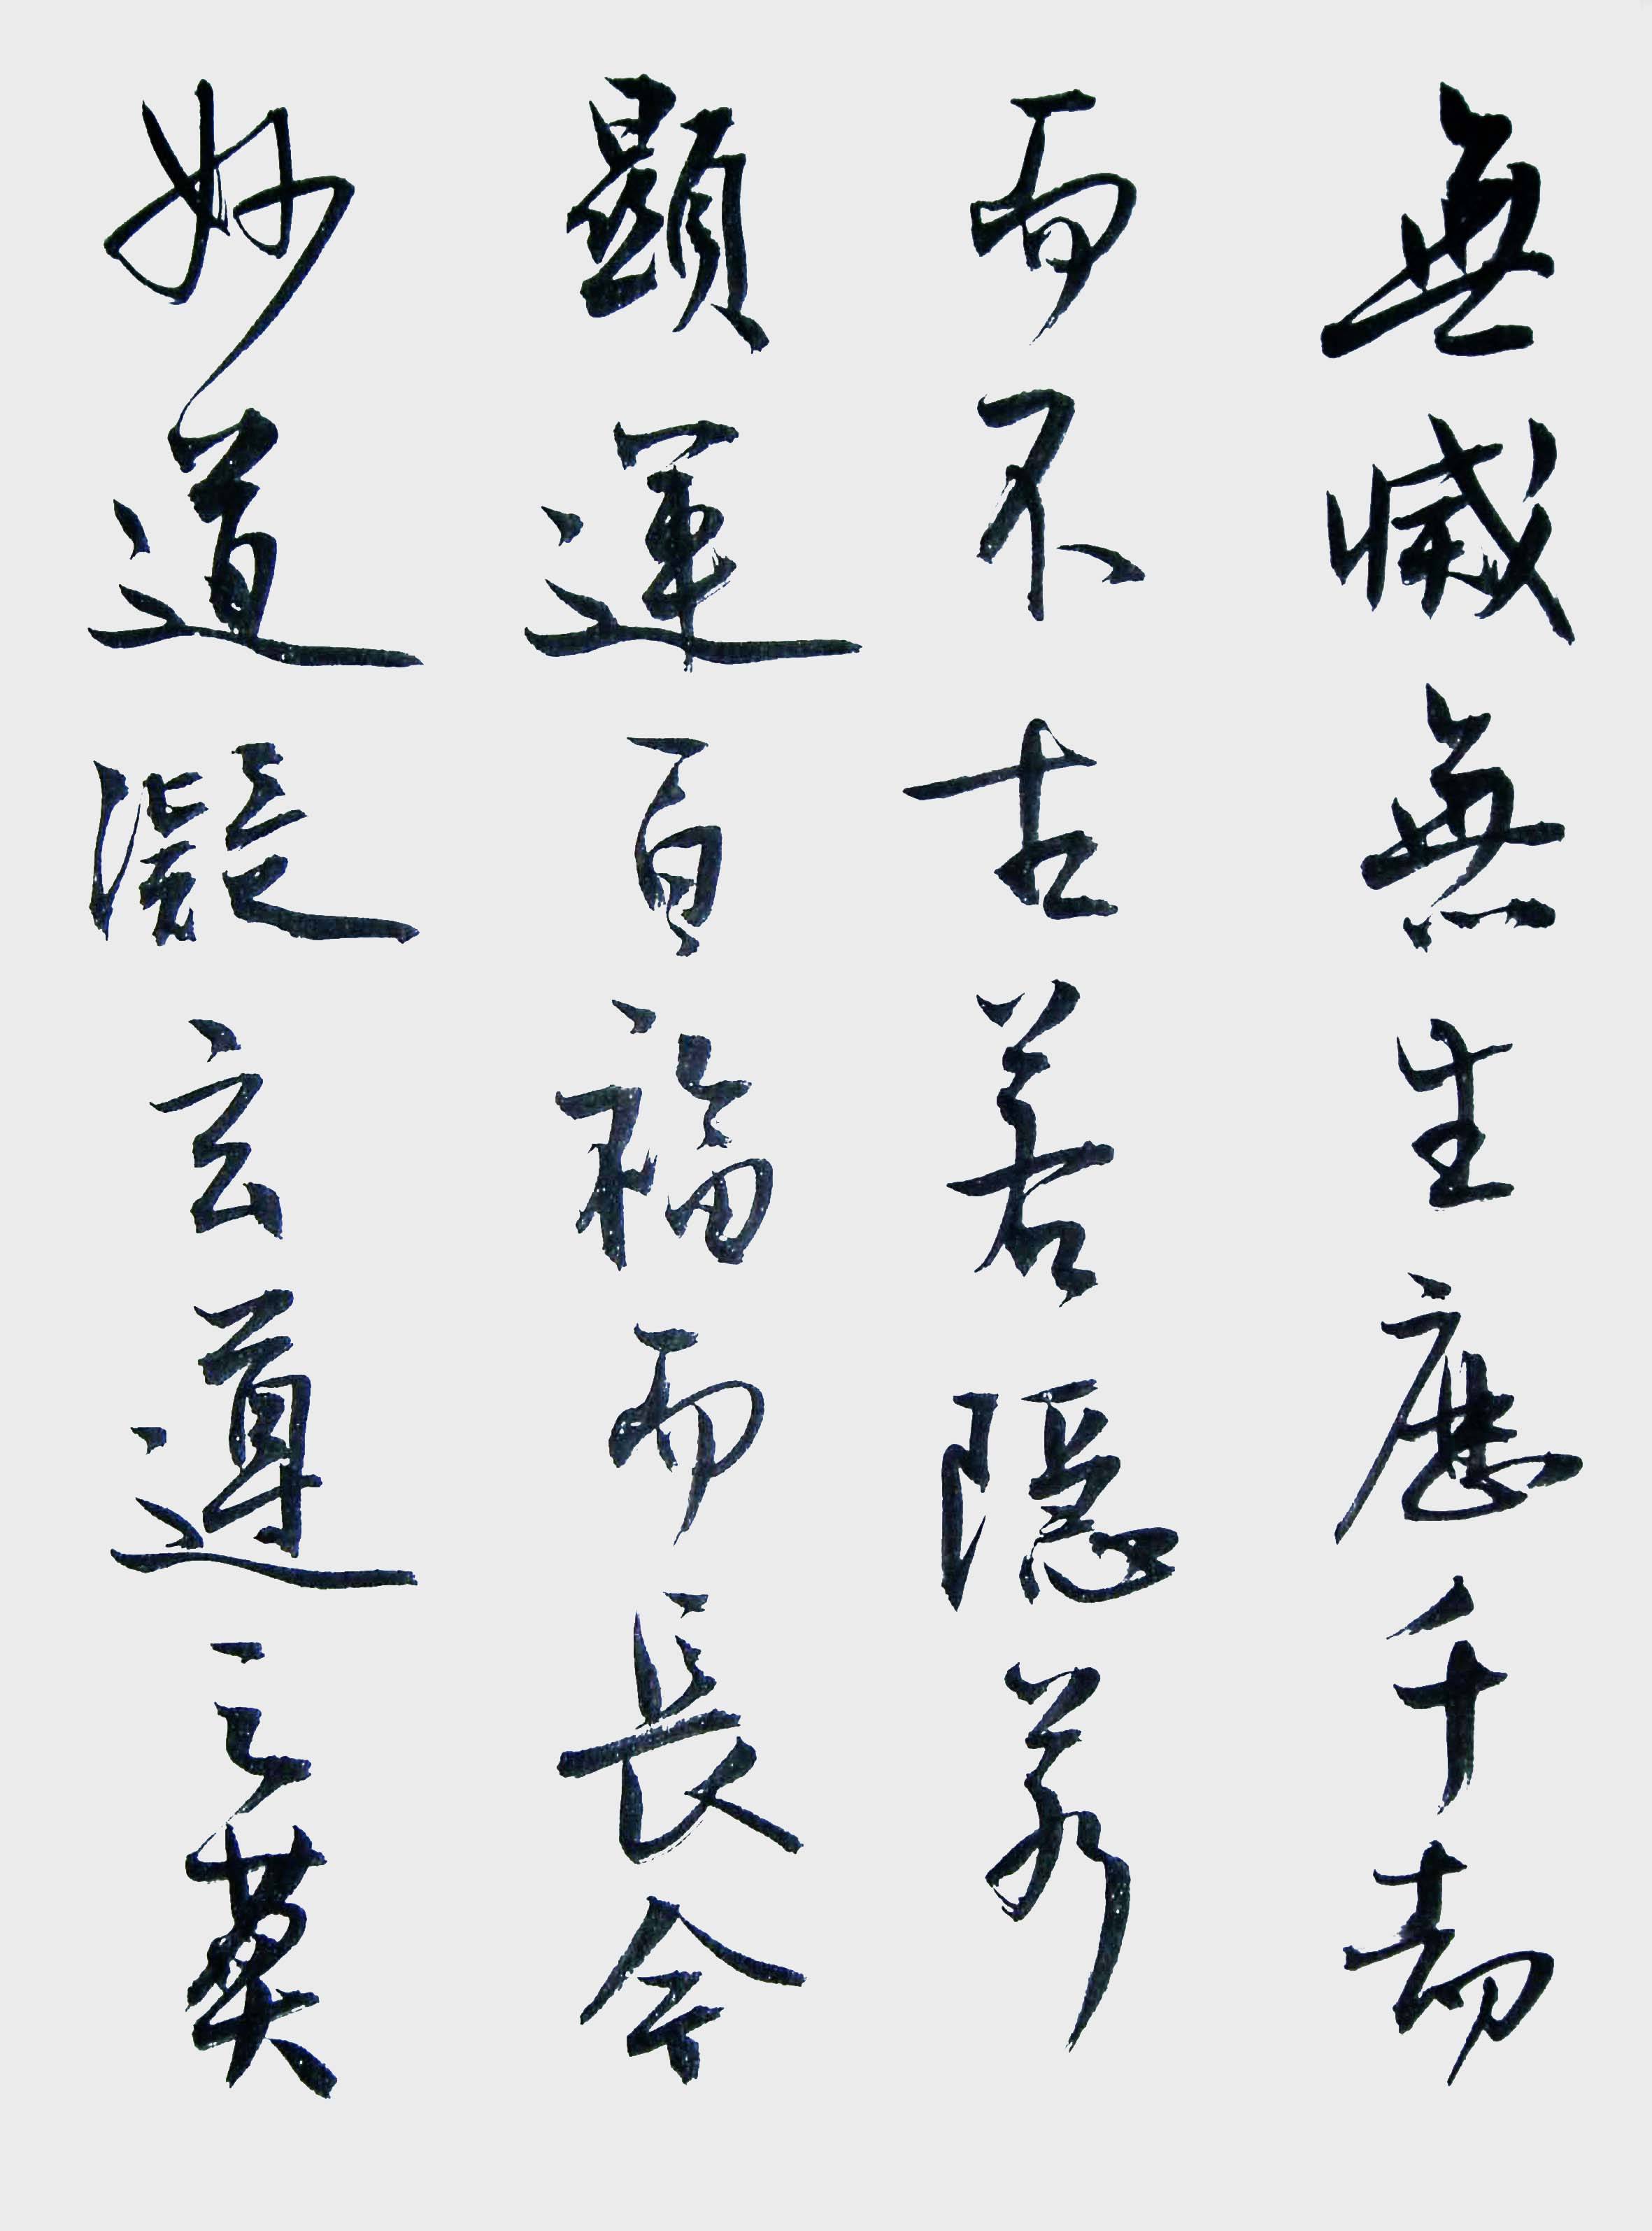 無滅無生歷千劫
而不古若隱若
顯運百福而長今
妙道凝玄遵之莫